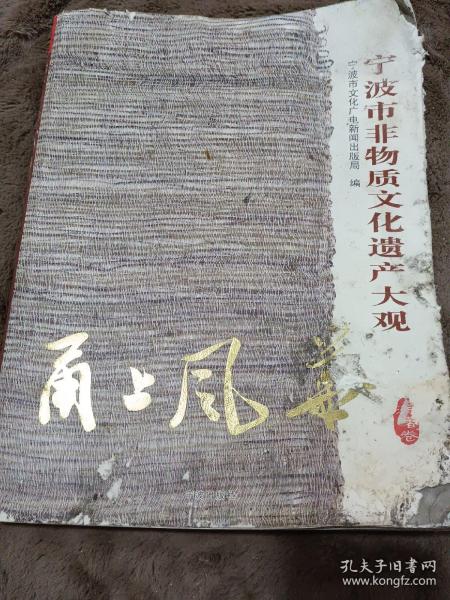 宁波市非物质文化遗产大观
宁波市文化广电新闻出版局 编
甬上风华
孔夫子旧书网
www.kongfz.com